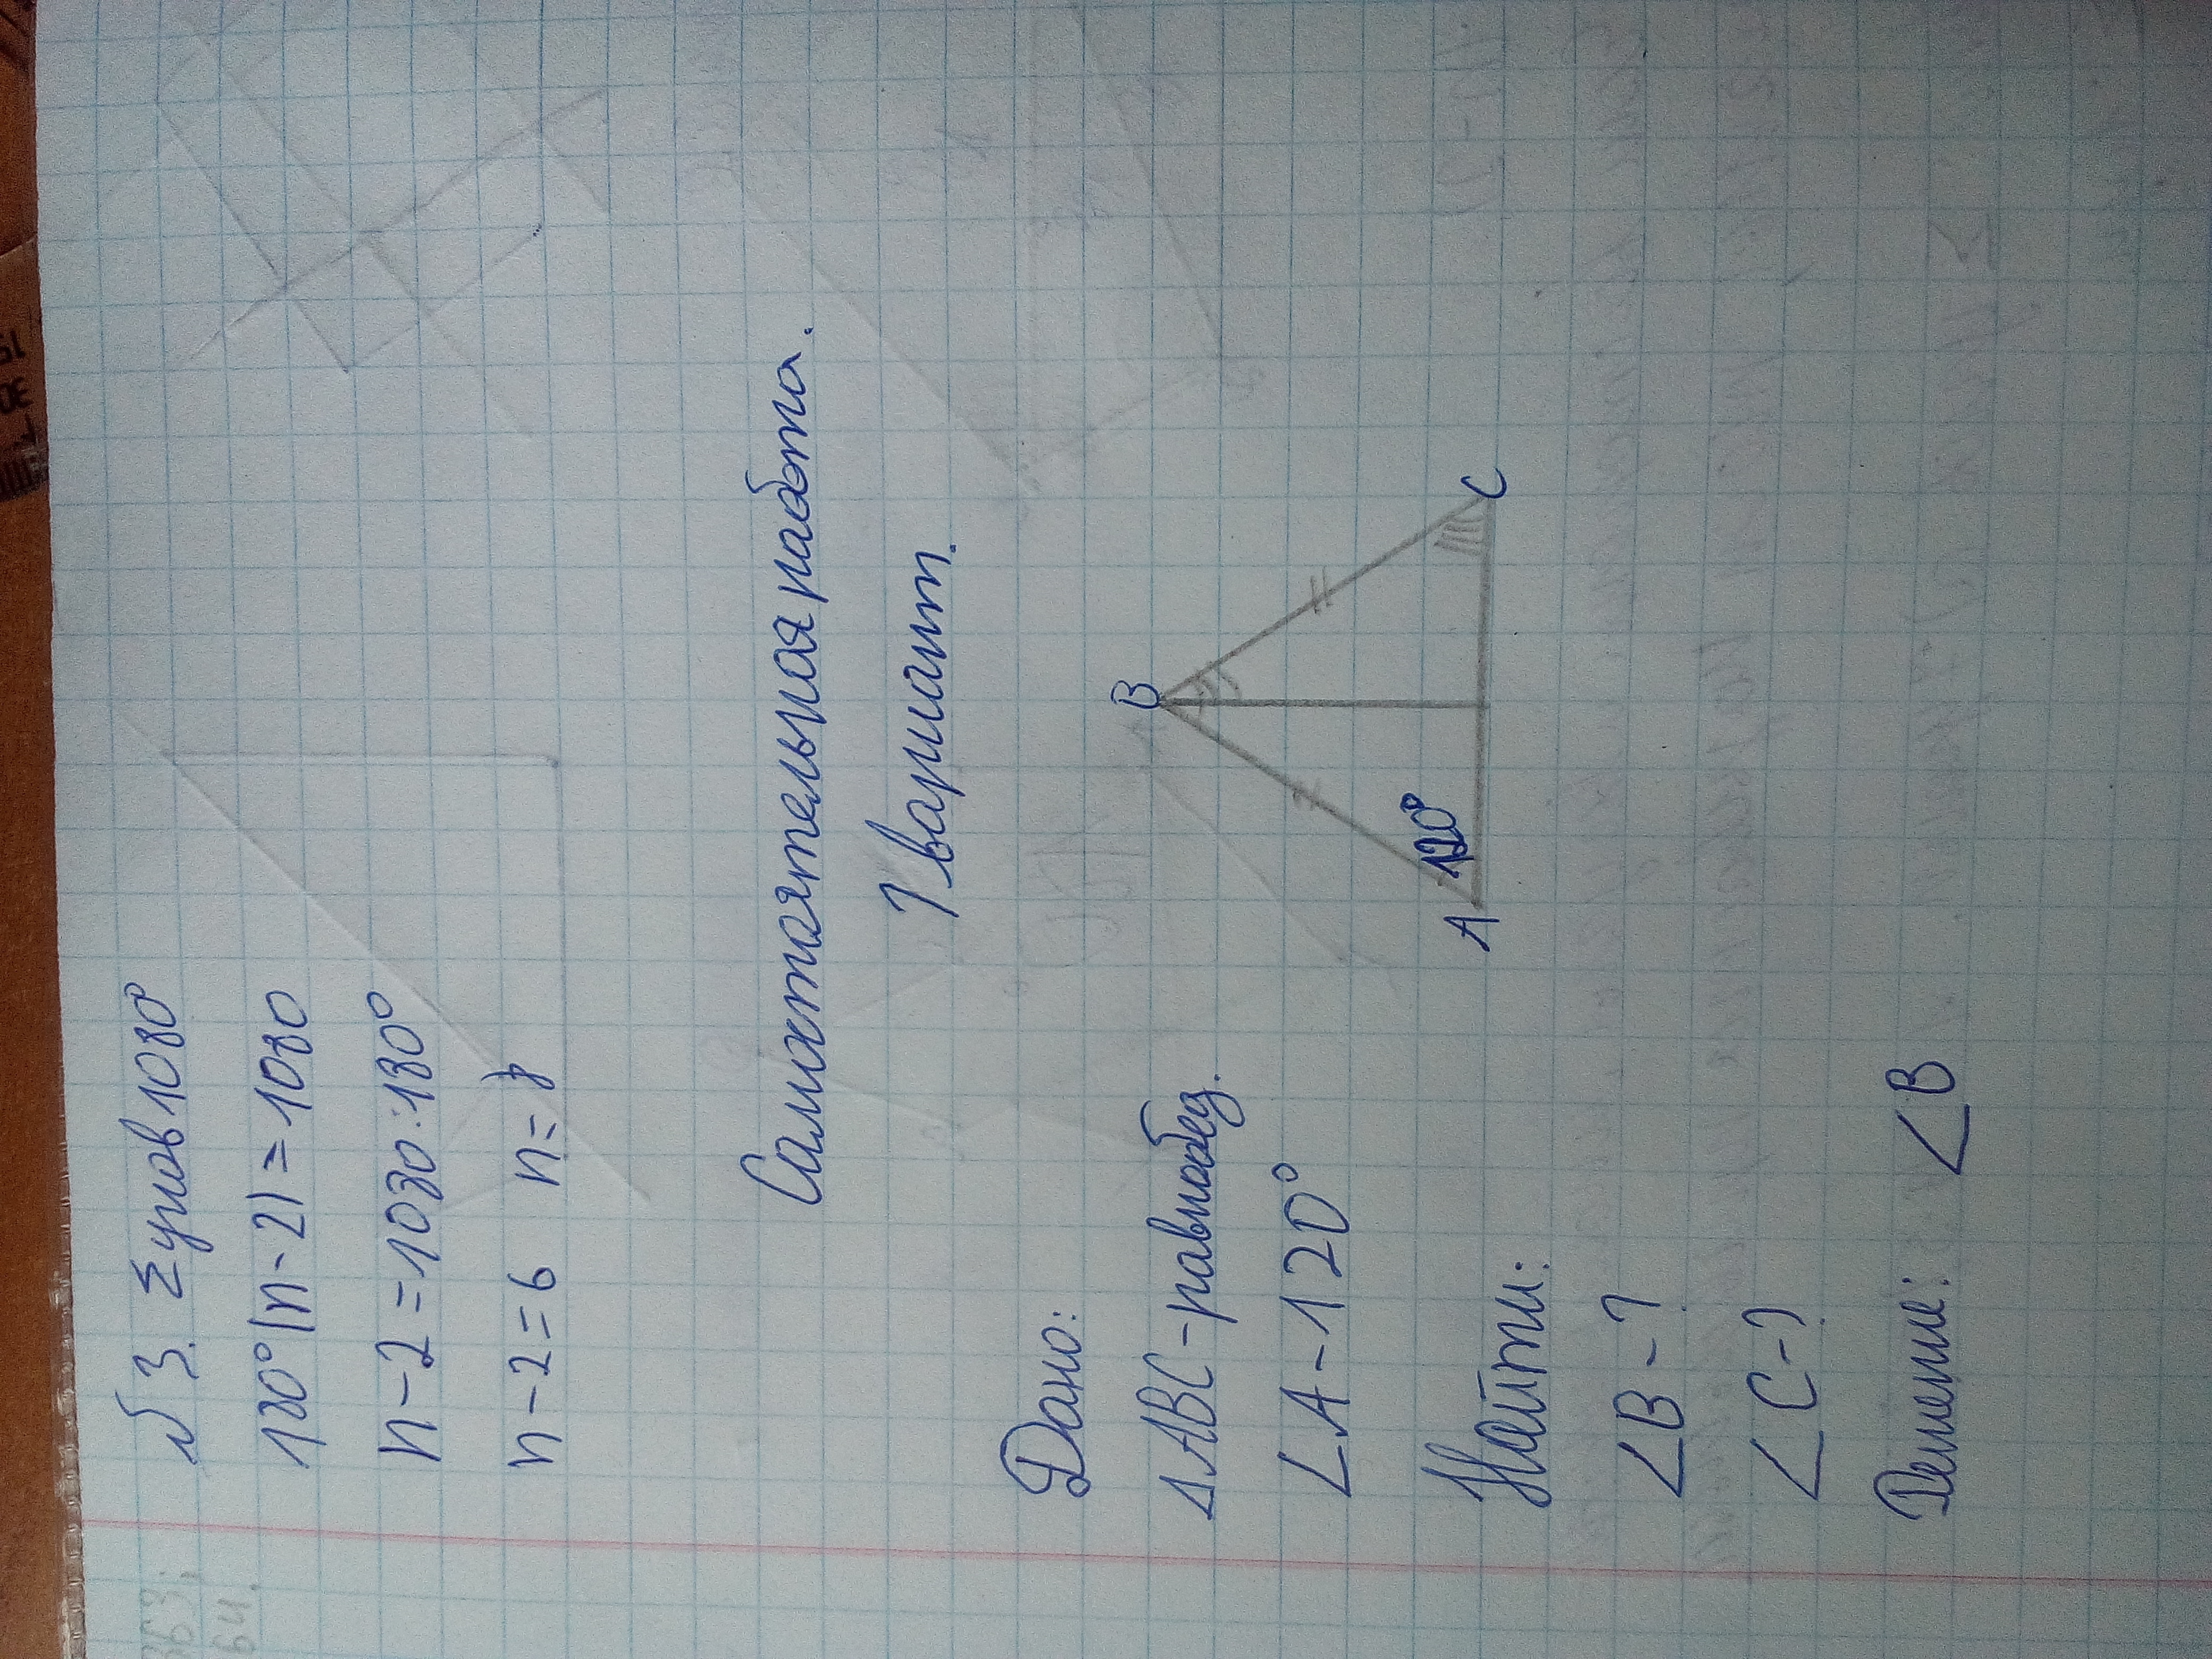 №3. Σ углов 1080°
180°(n-2)=1080
n-2=1080:180°
n-2=6 n=8
Самостоятельная работа.
1 вариант.
Дано:
∆ABC-равнобед.
∠A-120°
Найти:
∠B-?
∠C-?
Решение: ∠B
B
120°
A
C
363;
64.